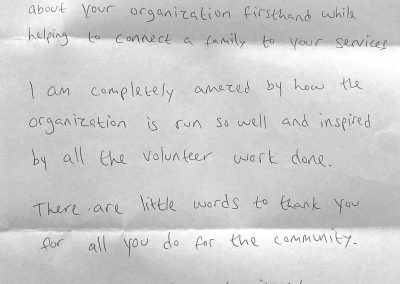 about your organization firsthand while
helping to connect a family to your services
I am completely amazed by how the
organization is run so well and inspired
by all the volunteer work done.
There are little words to thank you
for all you do for the community.